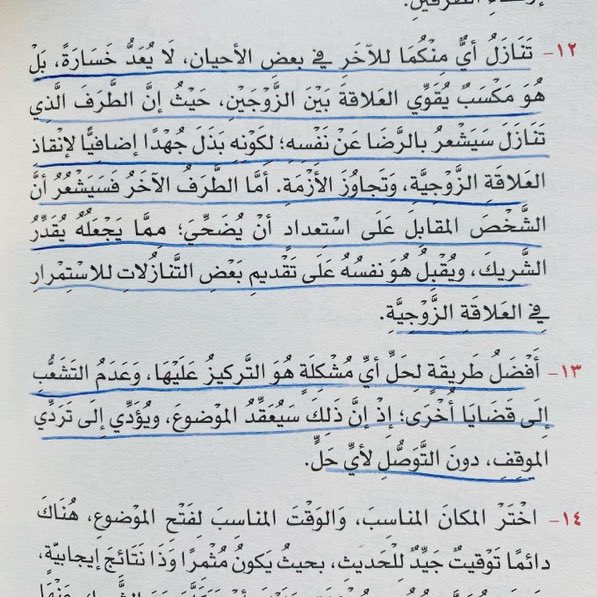 ١٢- تَنَازَلُ أيٍّ مِنْكُمَا للآخَرِ في بعضِ الأحيان، لَا يُعَدُّ خَسَارَةً، بَلْ
هُوَ مَكْسَبٌ يُقَوِّي العَلاقَةَ بَيْنَ الزَّوْجَيْنِ، حَيْثُ إنَّ الطَّرَفَ الَّذِي
تَنَازَلَ سَيَشْعرُ بالرَّضَا عَنْ نَفْسِهِ؛ لِكَوْنِهِ بَذَلَ جُهْدًا إضافيًّا لإنْقَاذِ
العَلاقَةِ الزَّوْجِيَّةِ، وَتَجاوُزِ الأَزْمَةِ. أمَّا الطَّرَفُ الآخَرُ فَسَيَشْعُرُ أنَّ
الشَّخْصَ المقابِلَ عَلَى اسْتعدادٍ أنْ يُضَحِّيَ؛ مِمَّا يَجْعلُهُ يُقَدِّرُ
الشَّريكَ، ويُقْبِلُ هُوَ نفسُهُ عَلَى تَقْديمِ بَعْضِ التَّنازُلاتِ للاسْتِمْرارِ
في العَلاقَةِ الزَّوْجيَّةِ.
١٣- أَفْضَلُ طَريقَةٍ لِحَلِّ أيِّ مُشْكِلَةٍ هُوَ التَّركيزُ عَلَيْهَا، وَعَدَمُ التَشَعُّبِ
إلَى قَضَايَا أُخْرَى؛ إذْ إنَّ ذَلِكَ سَيُعَقِّدُ المَوْضوعَ، ويُؤَدِّي إلَى تَرَدِّي
الموقِفِ، دونَ التَّوَصُّلِ لأيِّ حَلٍّ.
١٤- اخْتَرْ المكانَ المناسِبَ، وَالوَقْتَ المناسِبَ لِفَتْحِ الموْضوعِ، هُنَاكَ
دائمًا تَوْقيتٌ جَيِّدٌ للْحَديثِ، بحيثُ يَكونُ مُثْمرًا وَذَا نَتَائجَ إيجابيَّةٍ،